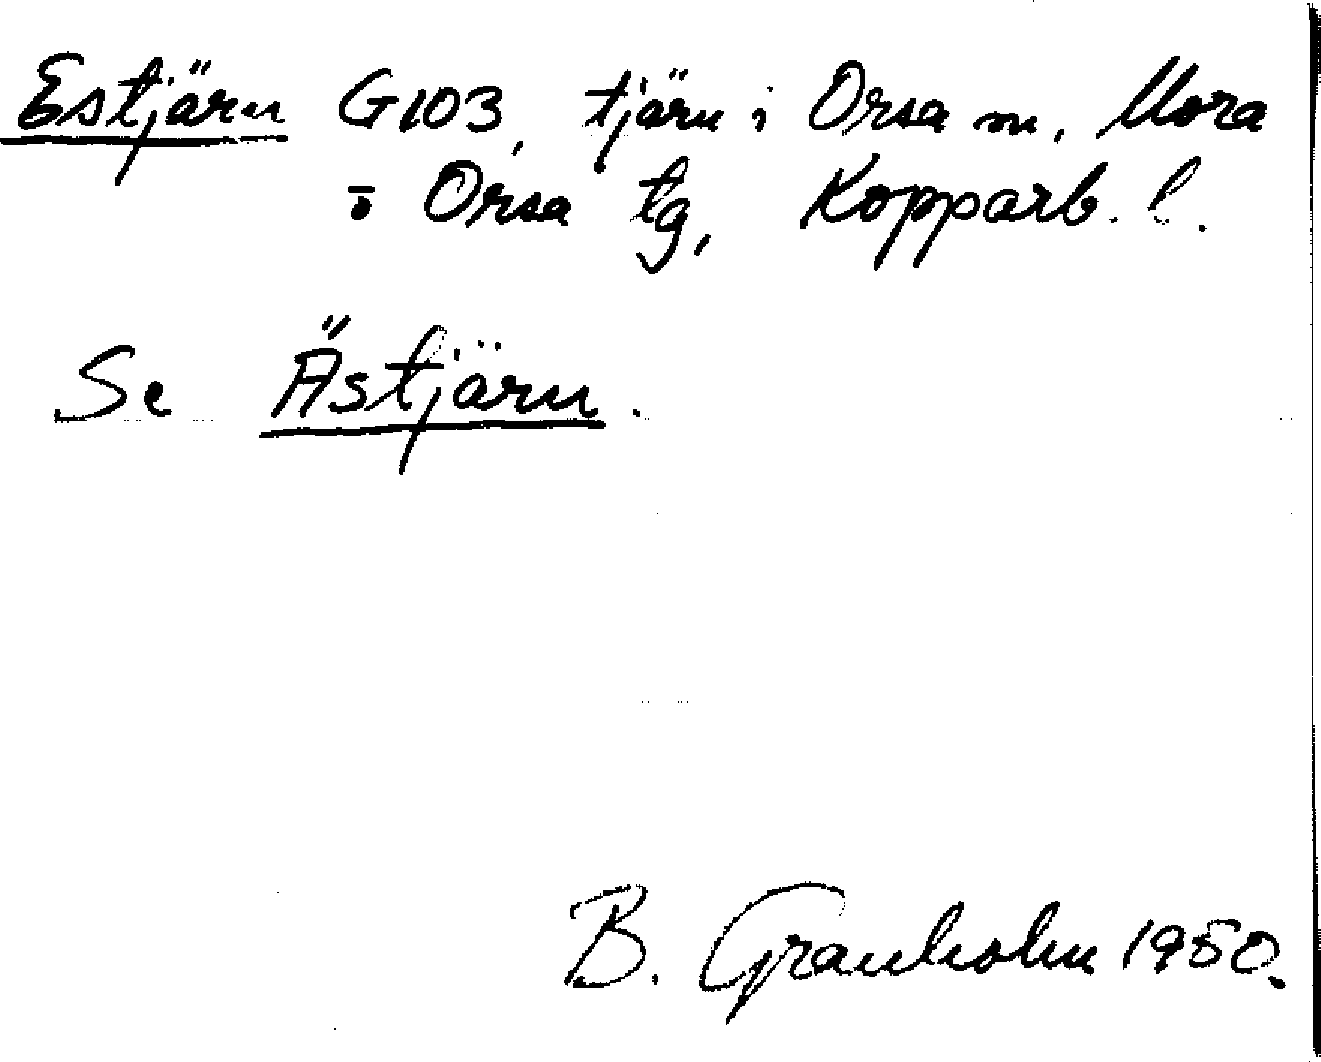 Estjärn G103, tjärn i Orsa sn, Mora
o Orsa tg, Kopparb. l.
Se Ästjärn.
B. Granholm 1950.